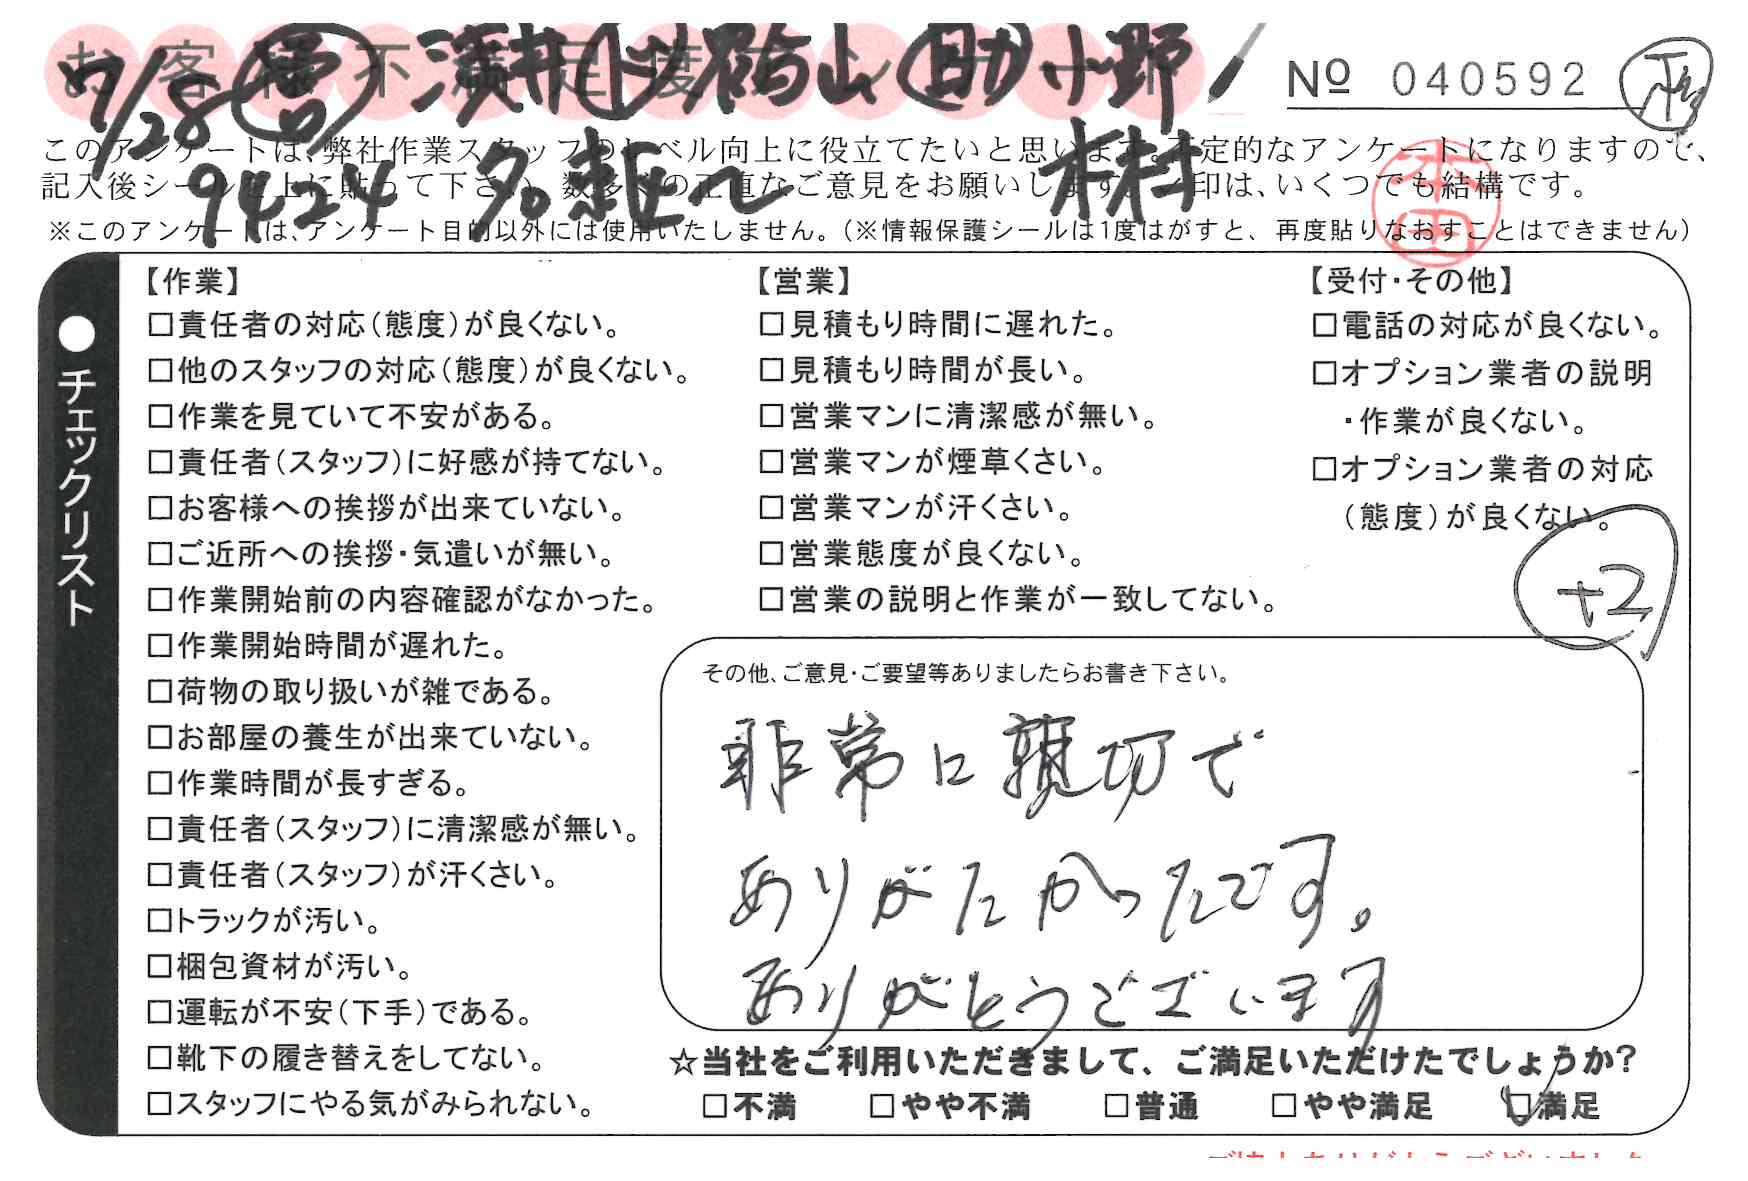 お客様不満足度アンケート
7/28 営 濱井 ト 硲山 助 小野
№ 040592
このアンケートは、弊社作業スタッフのレベル向上に役立てたいと思います。否定的なアンケートになりますので、
記入後シールを上に貼って下さい。数多くの正直なご意見をお願いします。✓印は、いくつでも結構です。
9424
本田
※このアンケートは、アンケート目的以外には使用いたしません。(※情報保護シールは1度はがすと、再度貼りなおすことはできません)
●チェックリスト
【作業】
□責任者の対応(態度)が良くない。
□他のスタッフの対応(態度)が良くない。
□作業を見ていて不安がある。
□責任者(スタッフ)に好感が持てない。
□お客様への挨拶が出来ていない。
□ご近所への挨拶・気遣いが無い。
□作業開始前の内容確認がなかった。
□作業開始時間が遅れた。
□荷物の取り扱いが雑である。
□お部屋の養生が出来ていない。
□作業時間が長すぎる。
□責任者(スタッフ)に清潔感が無い。
□責任者(スタッフ)が汗くさい。
□トラックが汚い。
□梱包資材が汚い。
□運転が不安(下手)である。
□靴下の履き替えをしてない。
□スタッフにやる気がみられない。
【営業】
□見積もり時間に遅れた。
□見積もり時間が長い。
□営業マンに清潔感が無い。
□営業マンが煙草くさい。
□営業マンが汗くさい。
□営業態度が良くない。
□営業の説明と作業が一致してない。
【受付・その他】
□電話の対応が良くない。
□オプション業者の説明
・作業が良くない。
□オプション業者の対応
(態度)が良くない。
+2
その他、ご意見・ご要望等ありましたらお書き下さい。
非常に親切で
ありがたかったです。
ありがとうございます
☆当社をご利用いただきまして、ご満足いただけたでしょうか?
□不満 □やや不満 □普通 □やや満足 ☑満足